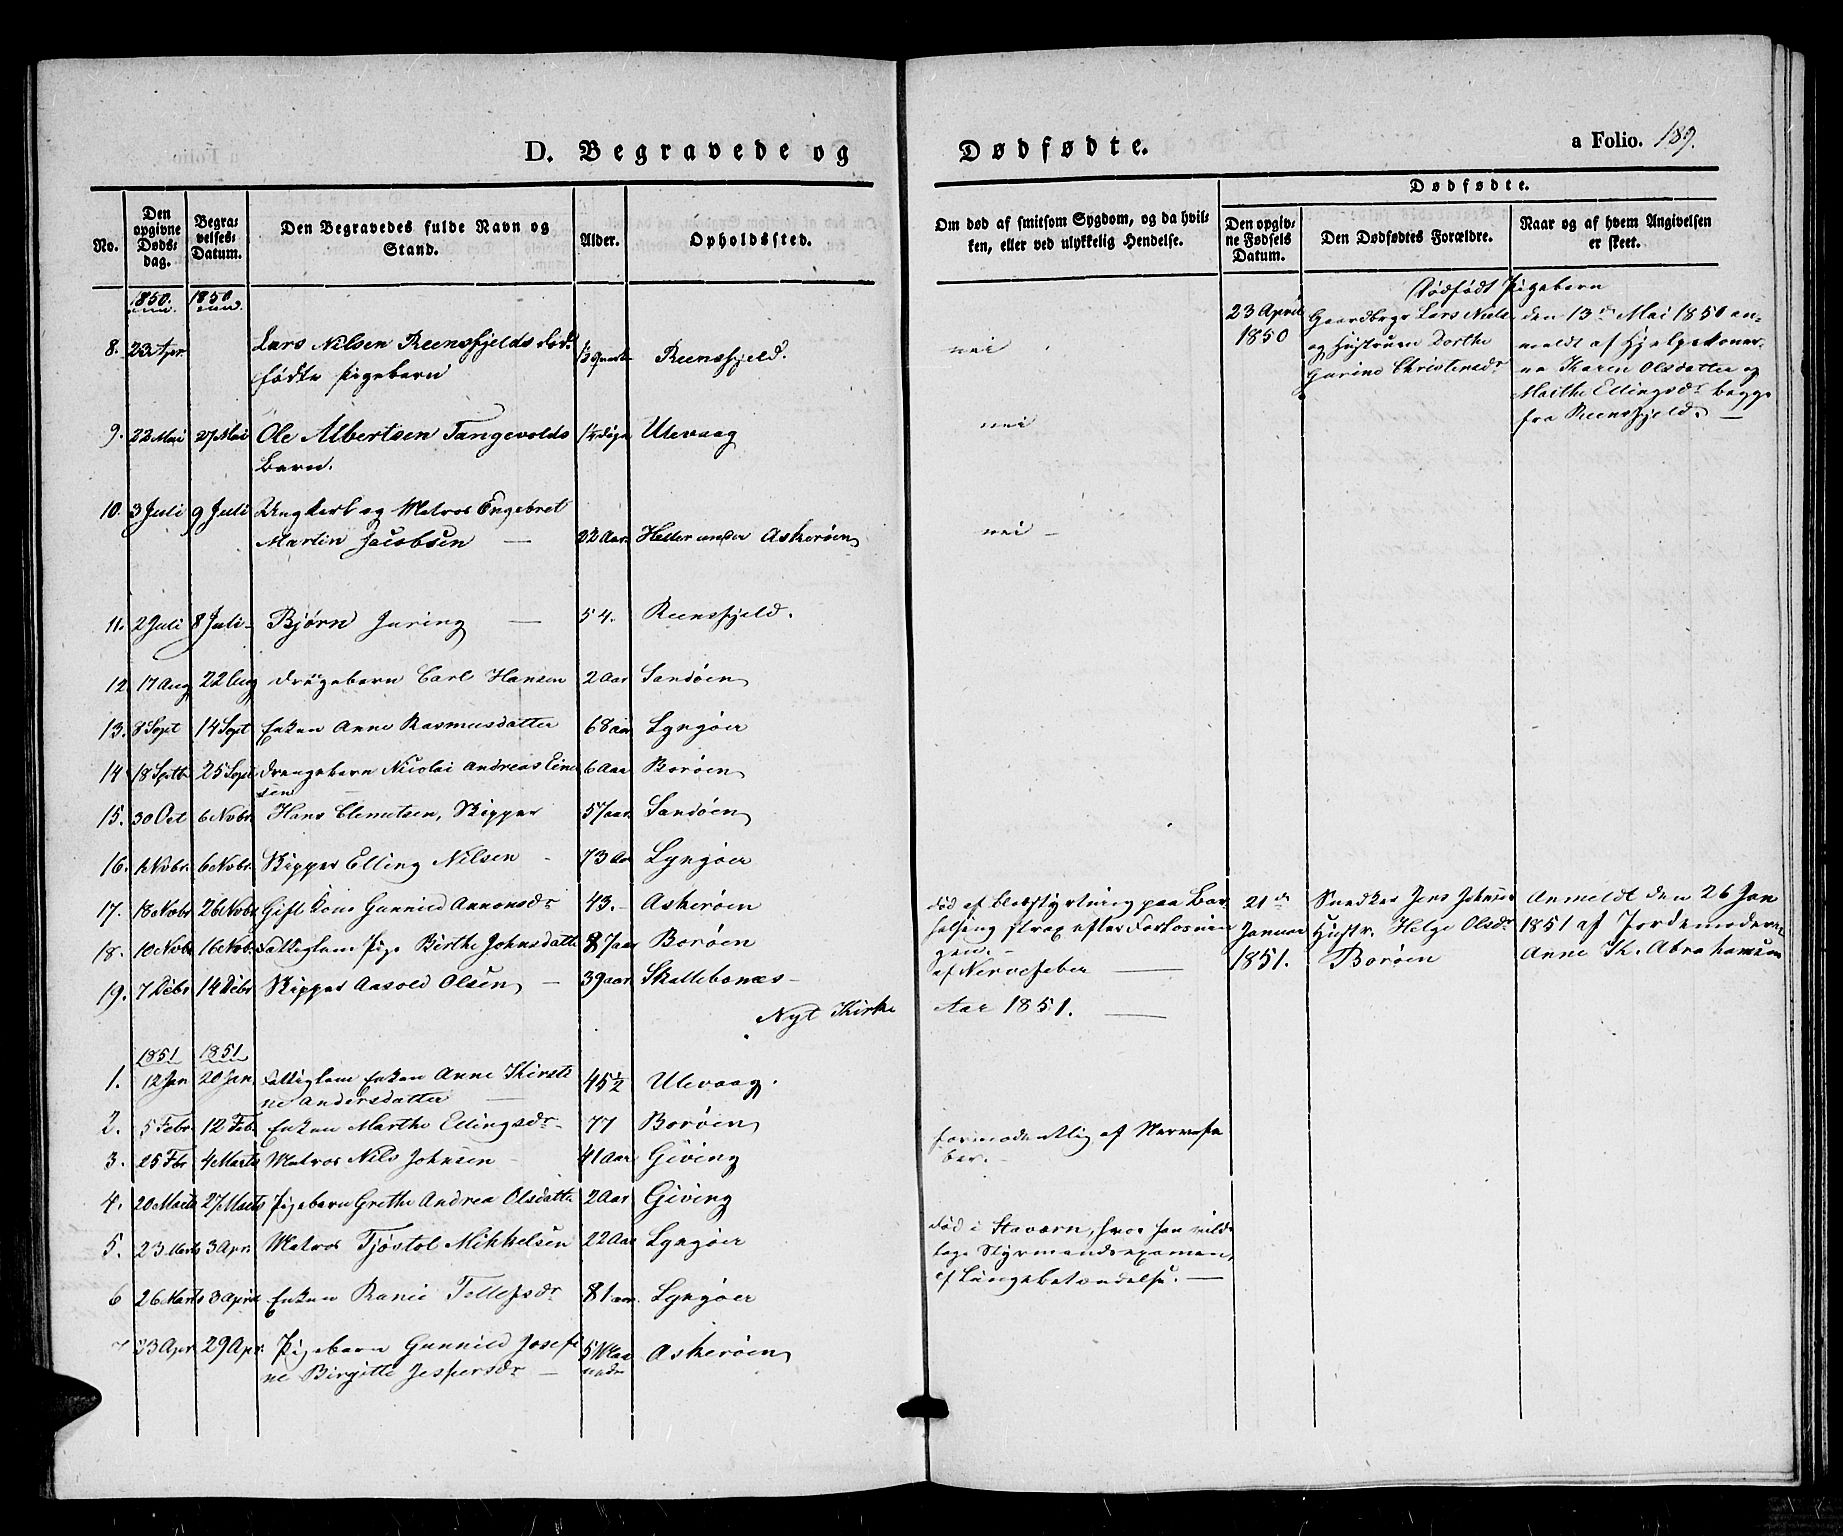 D. Begravede og
Dødfødte.
a Folio. 189.
No.
Den opgivne Døds-dag.
Begra-velses-Datum.
Den Begravedes fulde Navn og Stand.
Alder.
Opholdssted.
Om død af smitsom Sygdom, og da hvil-
ken, eller ved ulykkelig Hendelse.
Dødfødte.
Den opgiv-ne Fødsels Datum.
Den Dødfødtes Forældre.
Naar og af hvem Angivelsen er skeet.
1850. 1850
Dødfødt Pigebarn
8. 23 Apr Lars Nilsen Reensfjelds død-
fødte Pigebarn Reensfjeld. nei
23 April
1850
Gaardbrgr Lars Niels
og Hustruen Dorthe
Gurine Christensdr
den 13de Mai 1850 an-
meldt af Hjelpekoner-
ne Karen Olsdatter og
Marthe Ellingsdr begge
fra Reensfjeld. —
9. 22 Mai 27 Mai Ole Albertsen Tangevolds Ulevaag nei
Barn.
10. 3 Juli 9 Juli Ungkarl og Matros Engebret
Martin Jacobsen — 22 Aar Heller under Askerøen nei —
11. 2 Juli 8 Juli Bjørn Juring — 54. Reensfjeld.
12 17 Aug 22 Aug Drengebarn Carl Hansen 2 Aar Sandøen
13. 8 Sept 14 Sept Enken Anne Rasmusdatter 68 aar Lyngøer
14 18 Septb 25 Sept Drengebarn Nicolai Andreas Eine
sen 6 Aar Borøen
15. 30 Oct 6 Nvbr Hans Clemetsen, Skipper 57 aar Sandøen
16. 1 Nvbr 6 Nvbr Skipper Elling Nilsen - 73 Aar Lyngøer
17. 18 Nvbr 26 Nvbr Gift Kone Gunnild Aanonsdr 43. Askerøen
død af Blodstyrtning paa Bar-
selseng strax efter Forløsnin
gen. —
21de
Januar
1851.
Snedker Jens Johnsen
Hustr. Helge Olsdr
Borøen
Anmeldt den 26 Jan
1851 af Jordemoderen
Anne Th. Abrahamsen
18. 10 Nvbr 16 Nvbr Fattiglem Pige Birthe Johnsdatter 87 aar Borøen
19. 7 Debr 14 Debr Skipper Aasold Olsen — 39 aar Skallebonæs — af Nervefeber —
Nyt Kirke Aar 1851. —
1851 1851
1. 12 Jan 20 Jan. Fattiglem Enken Anne Kirsti
ne Andersdatter — 45½ Ulevaag.
2. 5 Febr 12 Feb. Enken Marthe Ellingsdr 77 Borøen
3. 25 Fbr 4 Marts Matros Nils Johnsen - 41 Aar Giving
formodentlig af Nervefe
ber. —
4. 20 Marts 27 Marts Pigebarn Grethe Andrea Olsdattr 2 Aar Giving
5. 23 Marts 3 Apr. Matros Tjøstol Mikkelsen 22 Aar Lyngøer
død i Stavern, hvor han vilde
tage Styrmandsexamen,
af Lungebetændelse. —
6 26 Marts 3 April Enken Ranei Tellefsdr 81 aar Lyngøer
7 23 Apr 29 Apr. Pigebarn Gunnild Josefi
ne Birgitte Jespersdr — 5 Maa
neder Askerøen